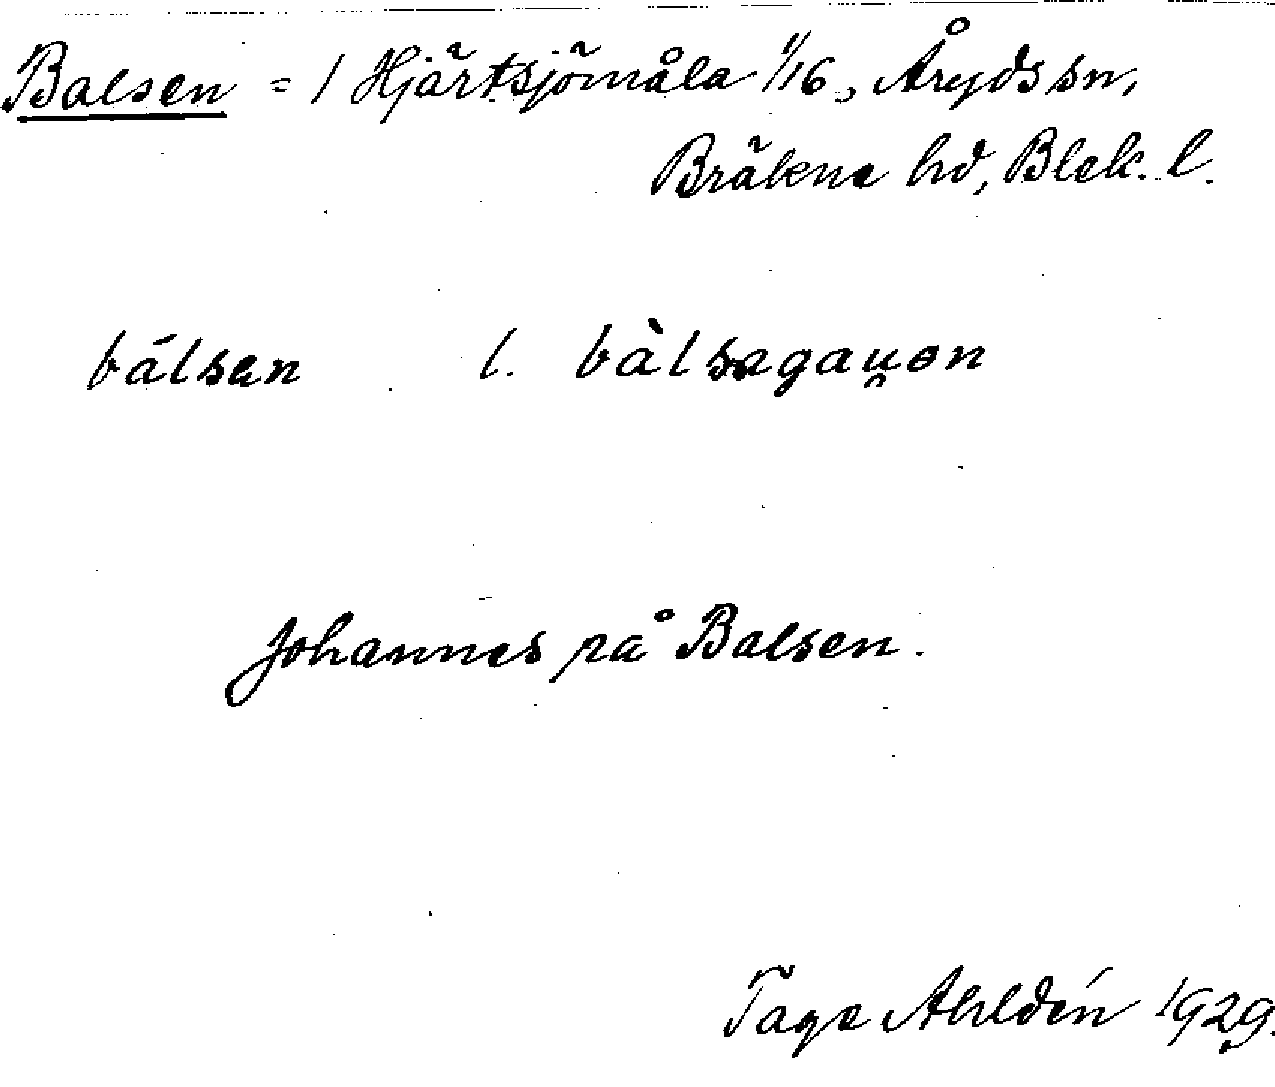 Balsen = 1 Hjärtsjömåla 1/16, Åryds sn,
Bräkne hd, Blek. l.
bálsen l. bàlsagau̯ən
Johannes på Balsen.
Tage Ahldén 1929.